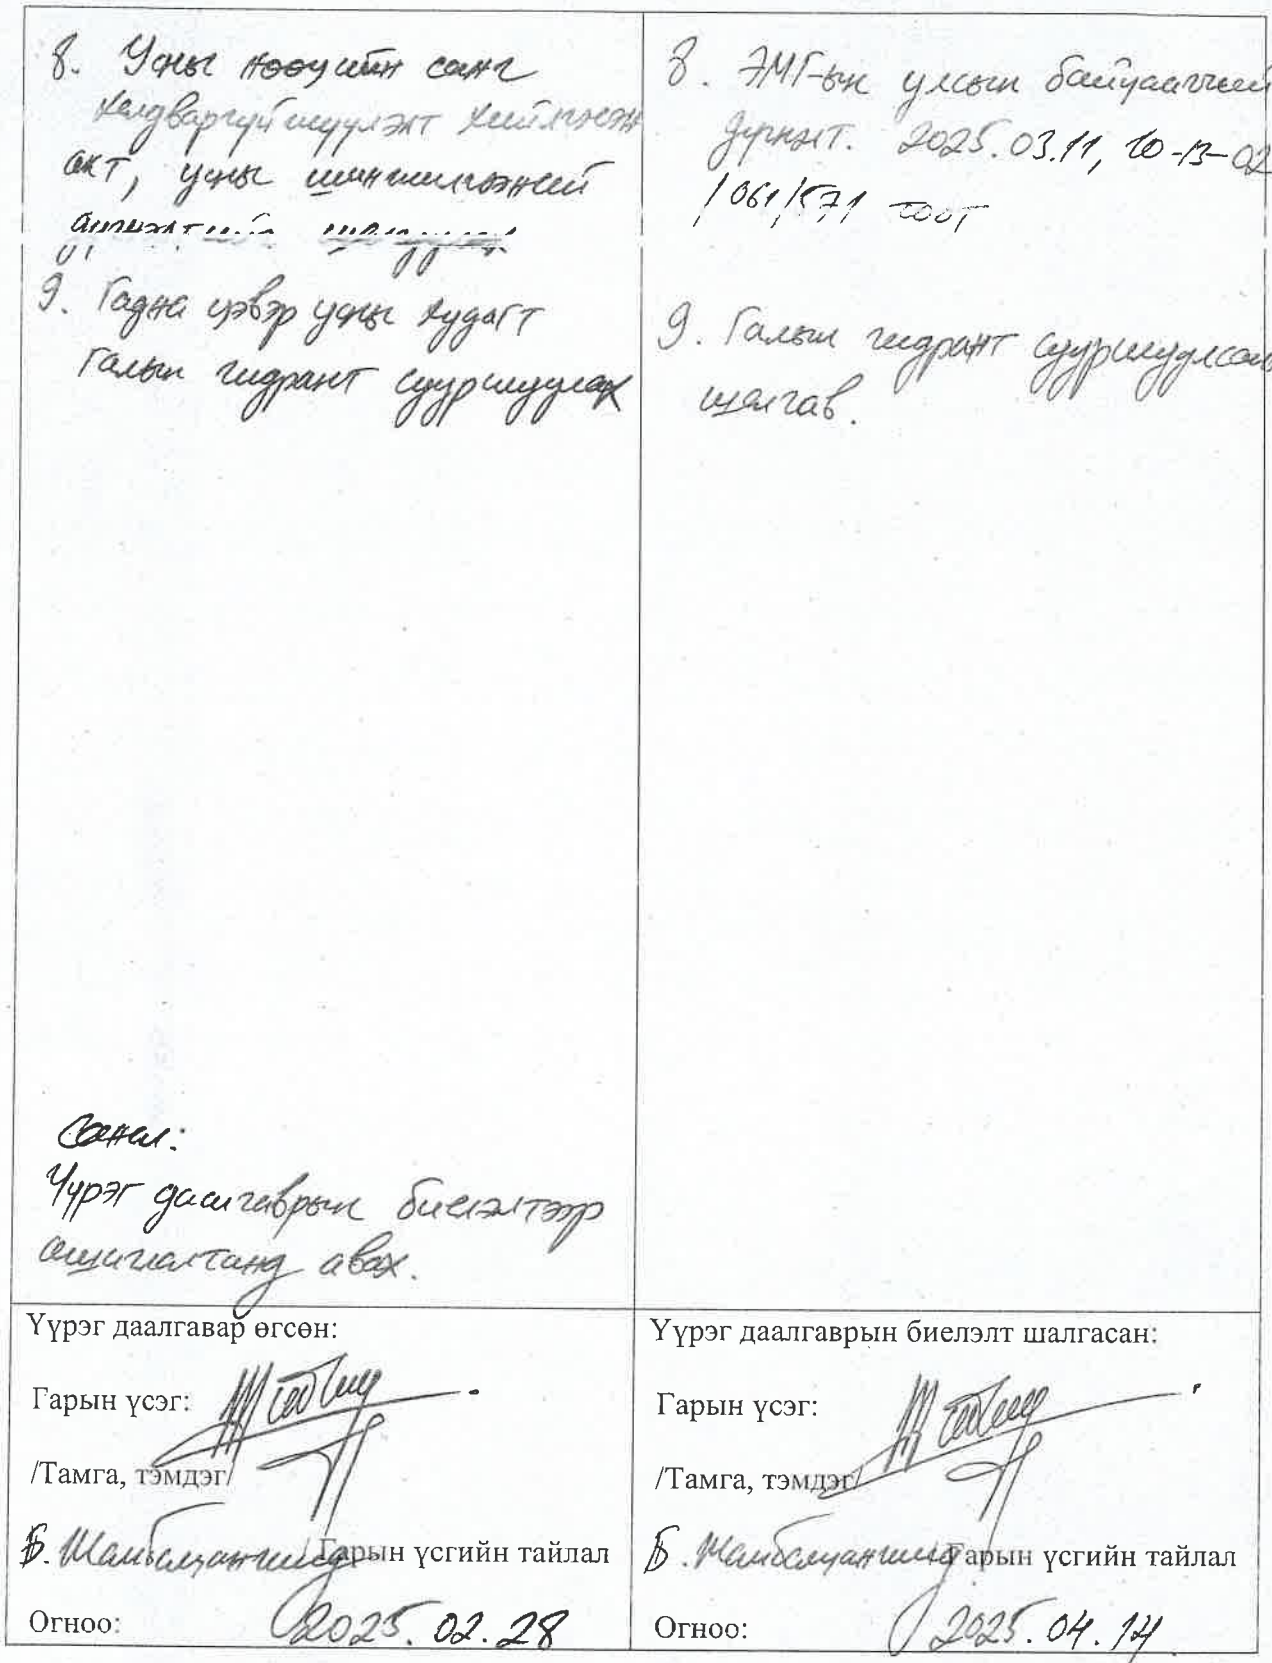 8. Усны нөөцийн санг
халдваргүйшүүлэлт хийлгэсэн
акт, усны шинжилгээний
дүгнэлтийг
9. Гадна цэвэр усны худагт
галын гидрант суурилуулах
Санал:
Үүрэг даалгаврын биелэлтээр
ашиглалтанд авах.
8. ЭМГ-ын улсын байцаагчийн
дүгнэлт. 2025.03.11, 10-13-02
/061/571 тоот
9. Галын гидрант суурилуулсан
шалгав.
Үүрэг даалгавар өгсөн:
Гарын үсэг:
/Тамга, тэмдэг/
Б. / Гарын үсгийн тайлал
Огноо: 2025.02.28
Үүрэг даалгаврын биелэлт шалгасан:
Гарын үсэг:
/Тамга, тэмдэг/
Б. Гарын үсгийн тайлал
Огноо: 2025.04.14